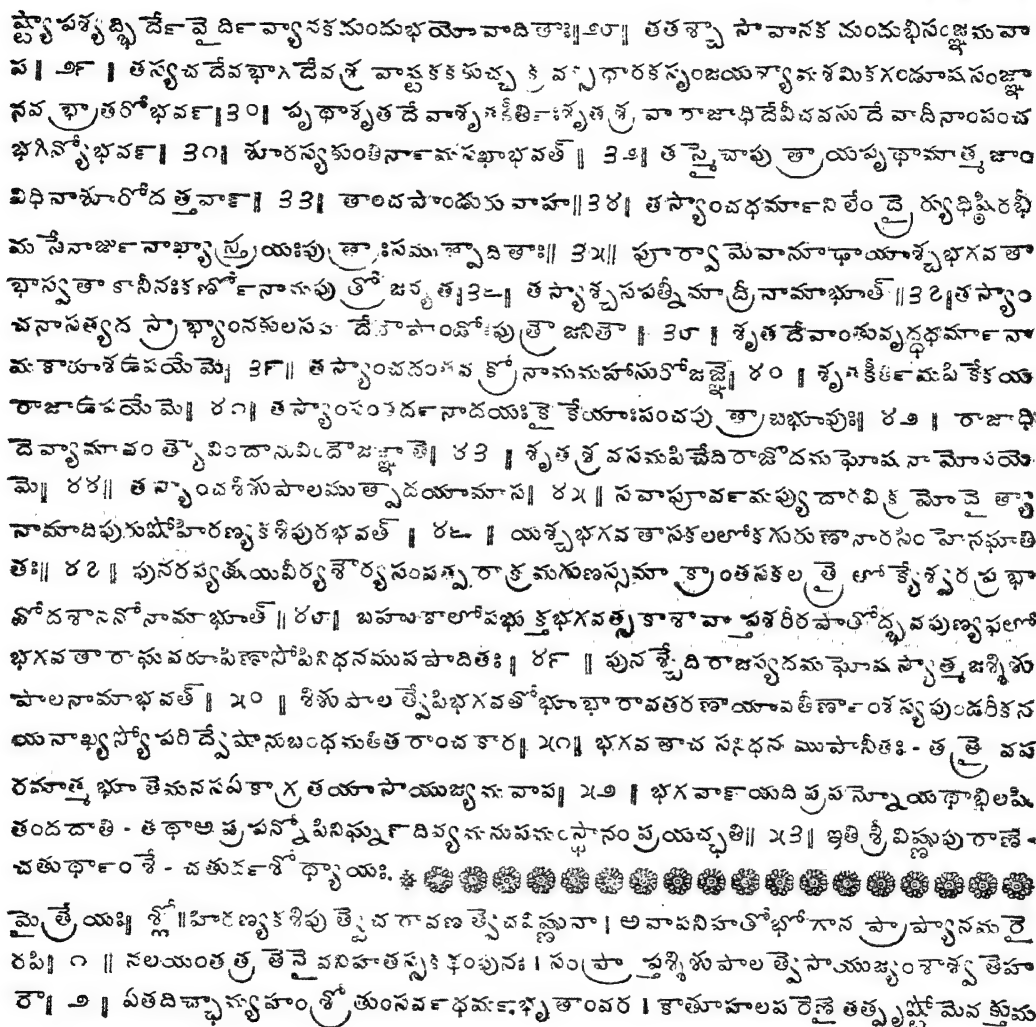 ష్ట్యాపశ్యద్భిర్దేవైర్దివ్యానకదుందుభయోవాదితాః॥ ౨౮॥ తతశ్చా సావానకదుందుభిసంజ్ఞామవా
ప॥ ౨౯ ॥ తస్యచ దేవభాగదేవశ్రవాష్టకకకుచ్చక్రవత్సధారకసృంజయశ్యామశమికగండూషసంజ్ఞా
నవభ్రాతరోభవ౯॥ ౩౦॥ పృథాశృతదేవాశృతకీర్తిఃశృతశ్రవా రాజాధిదేవీచవసుదేవాదీనాంపంచ
భగిన్యోభవ౯॥ ౩౧॥ శూరస్యకుంతిర్నామసఖాభవత్॥ ౩౨॥ తస్మైచాపుత్రాయపృథామాత్మజాం
విధినాశూరోదత్తవా౯॥ ౩౩॥ తాంచపాండురువాహ॥ ౩౪॥ తస్యాంచధర్మానిలేంద్రైర్యుధిష్ఠిరభీ
మసేనార్జునాఖ్యాస్త్రయఃపుత్రాఃసముత్పాదితాః॥ ౩౫॥ పూర్వామేవానూఢాయాశ్చభగవతా
భాస్వతా కానీనఃకర్ణోనామపుత్రోజన్యత॥ ౩౬॥ తస్యాశ్చసపత్నీమాద్రీనామాభూత్॥ ౩౭॥ తస్యాం
చనాసత్యదస్రాభ్యాంనకులసహదేవౌపాండోఃపుత్రౌ జనితౌ॥ ౩౮ ॥ శృతదేవాంతువృద్ధధర్మానా
మకారూశఉపయేమే॥ ౩౯॥ తస్యాంచదంతవక్రోనామమహాసురోజజ్ఞే॥ ౪౦ ॥ శృతకీర్తిమపి కేకయ
రాజాఉపయేమే॥ ౪౧॥ తస్యాంసంతర్దనాదయఃకైకేయాఃపంచపుత్రాబభూవుః॥ ౪౨ ॥ రాజాధి
దేవ్యామావంత్యౌవిందానువిందౌజజ్ఞాతే॥ ౪౩ ॥ శృతశ్రవసమపిచేదిరాజోదమఘోషనామోపయే
మే॥ ౪౪॥ తస్యాంచశిశుపాలముత్పాదయామాస॥ ౪౫ ॥ సవాపూర్వమప్యుదారవిక్రమోదైత్యా
నామాదిపురుషోహిరణ్యకశిపురభవత్ ॥ ౪౬ ॥ యశ్చభగవతాసకలలోకగురుణానారసింహేనఘాతి
తః॥ ౪౭ ॥ పునరప్యక్షయవీర్యశౌర్యసంపత్పరాక్రమగుణస్సమాక్రాంతసకలత్రైలోక్యేశ్వరప్రభా
వోదశాననోనామాభూత్॥ ౪౮॥ బహుకాలోపభుక్తభగవత్సకాశావాప్తశరీరపాతోద్భవపుణ్యఫలో
భగవతారాఘవరూపిణాసోపినిధనముపపాదితః॥ ౪౯ ॥ పునశ్చేదిరాజస్యదమఘోషస్యాత్మజశ్శిశు
పాలనామాభవత్॥ ౫౦ ॥ శిశుపాలత్వేపిభగవతోభూభారావతరణాయావతీర్ణాంశస్యపుండరీకన
యనాఖ్యస్యోపరిద్వేషానుబంధమతితరాంచకార॥ ౫౧॥ భగవతాచ సనిధనముపానీతః - తత్రైవప
రమాత్మభూతేమనసఏకాగ్రతయాసాయుజ్యమవాప॥ ౫౨ ॥ భగవా౯యదిప్రపన్నోయథాభిలషి
తందదాతి - తథాఅప్రపన్నోపినిఘ్న౯దివ్యమనుపమంస్థానంప్రయచ్ఛతి॥ ౫౩॥ ఇతిశ్రీవిష్ణుపురాణే-
చతుర్థాంశే - చతుర్దశోధ్యాయః.
మైత్రేయః॥ శ్లో॥ హిరణ్యకశిపుత్వేచరావణత్వేచవిష్ణునా। అవాపనిహతోభోగానప్రాప్యానమరై
రపి॥ ౧ ॥ నలయంతత్రతేనైవనిహతస్సకథంపునః। సంప్రాప్తశ్శిశుపాలత్వేసాయుజ్యంశాశ్వతేహ
రౌ॥ ౨ ॥ ఏతదిచ్ఛామ్యహంశ్రోతుంసర్వధర్మభృతాంవర। కౌతూహలపరేణైతత్పృష్టోమేవక్తుమ